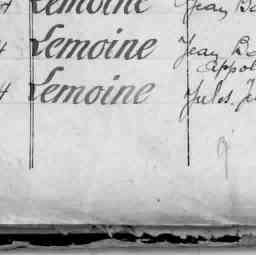 Lemoine Jean Ba
4 Lemoine Jean Ba
Appol
4 Lemoine Jules Ju